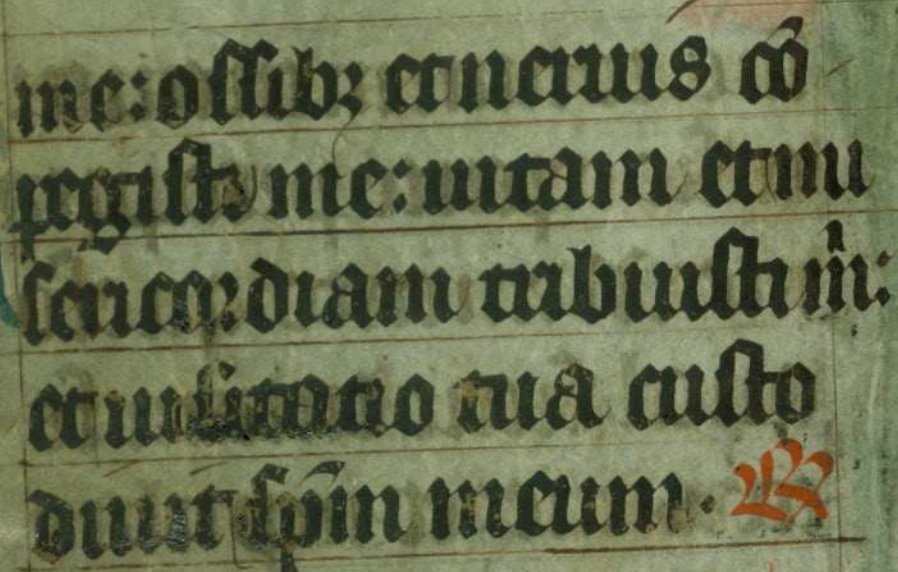 me: ossibꝫ et neruis cō
pegisti me: uitam et mi
sericordiam tribuisti m̄:
et uisitatio tua custo
diuit sp̄m meum. R